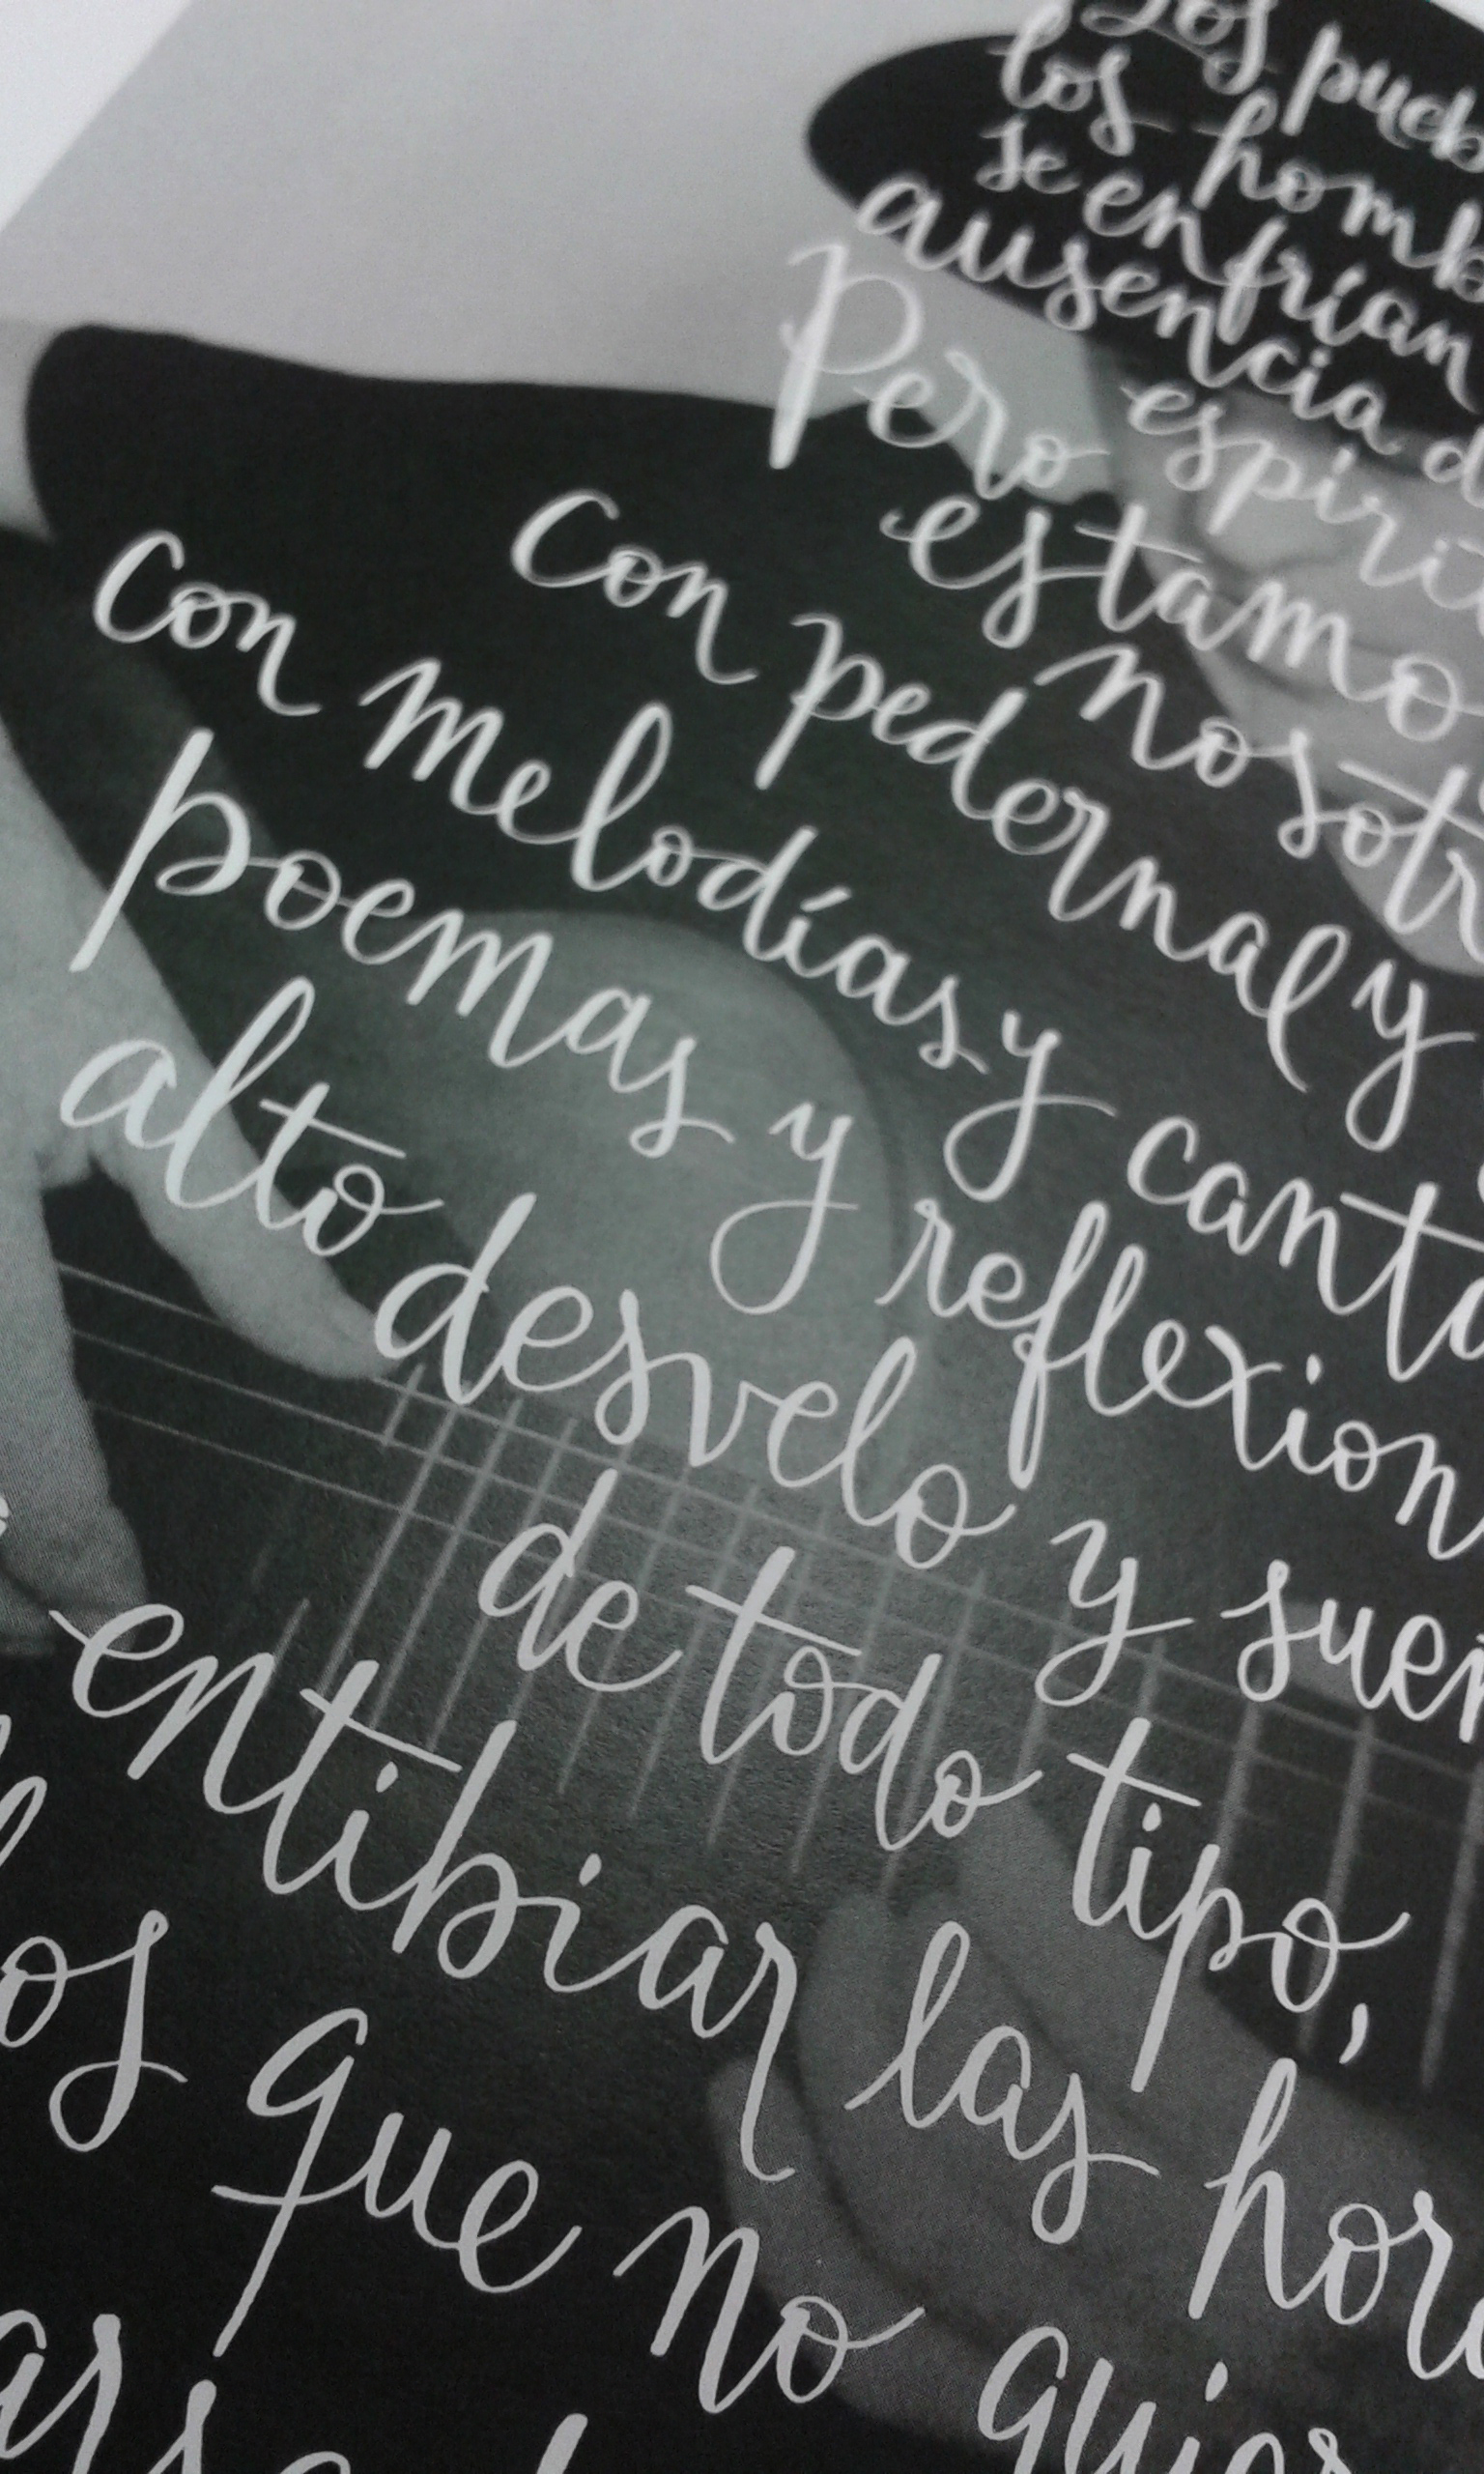 Los pueb
los homb
se enfrían
ausencia d
espirit
Pero
estamo
nosotr
Con pedernal y
con melodías y canto
poemas y reflexion
alto desvelo y sueñ
de todo tipo,
entibiar las hora
los que no quier